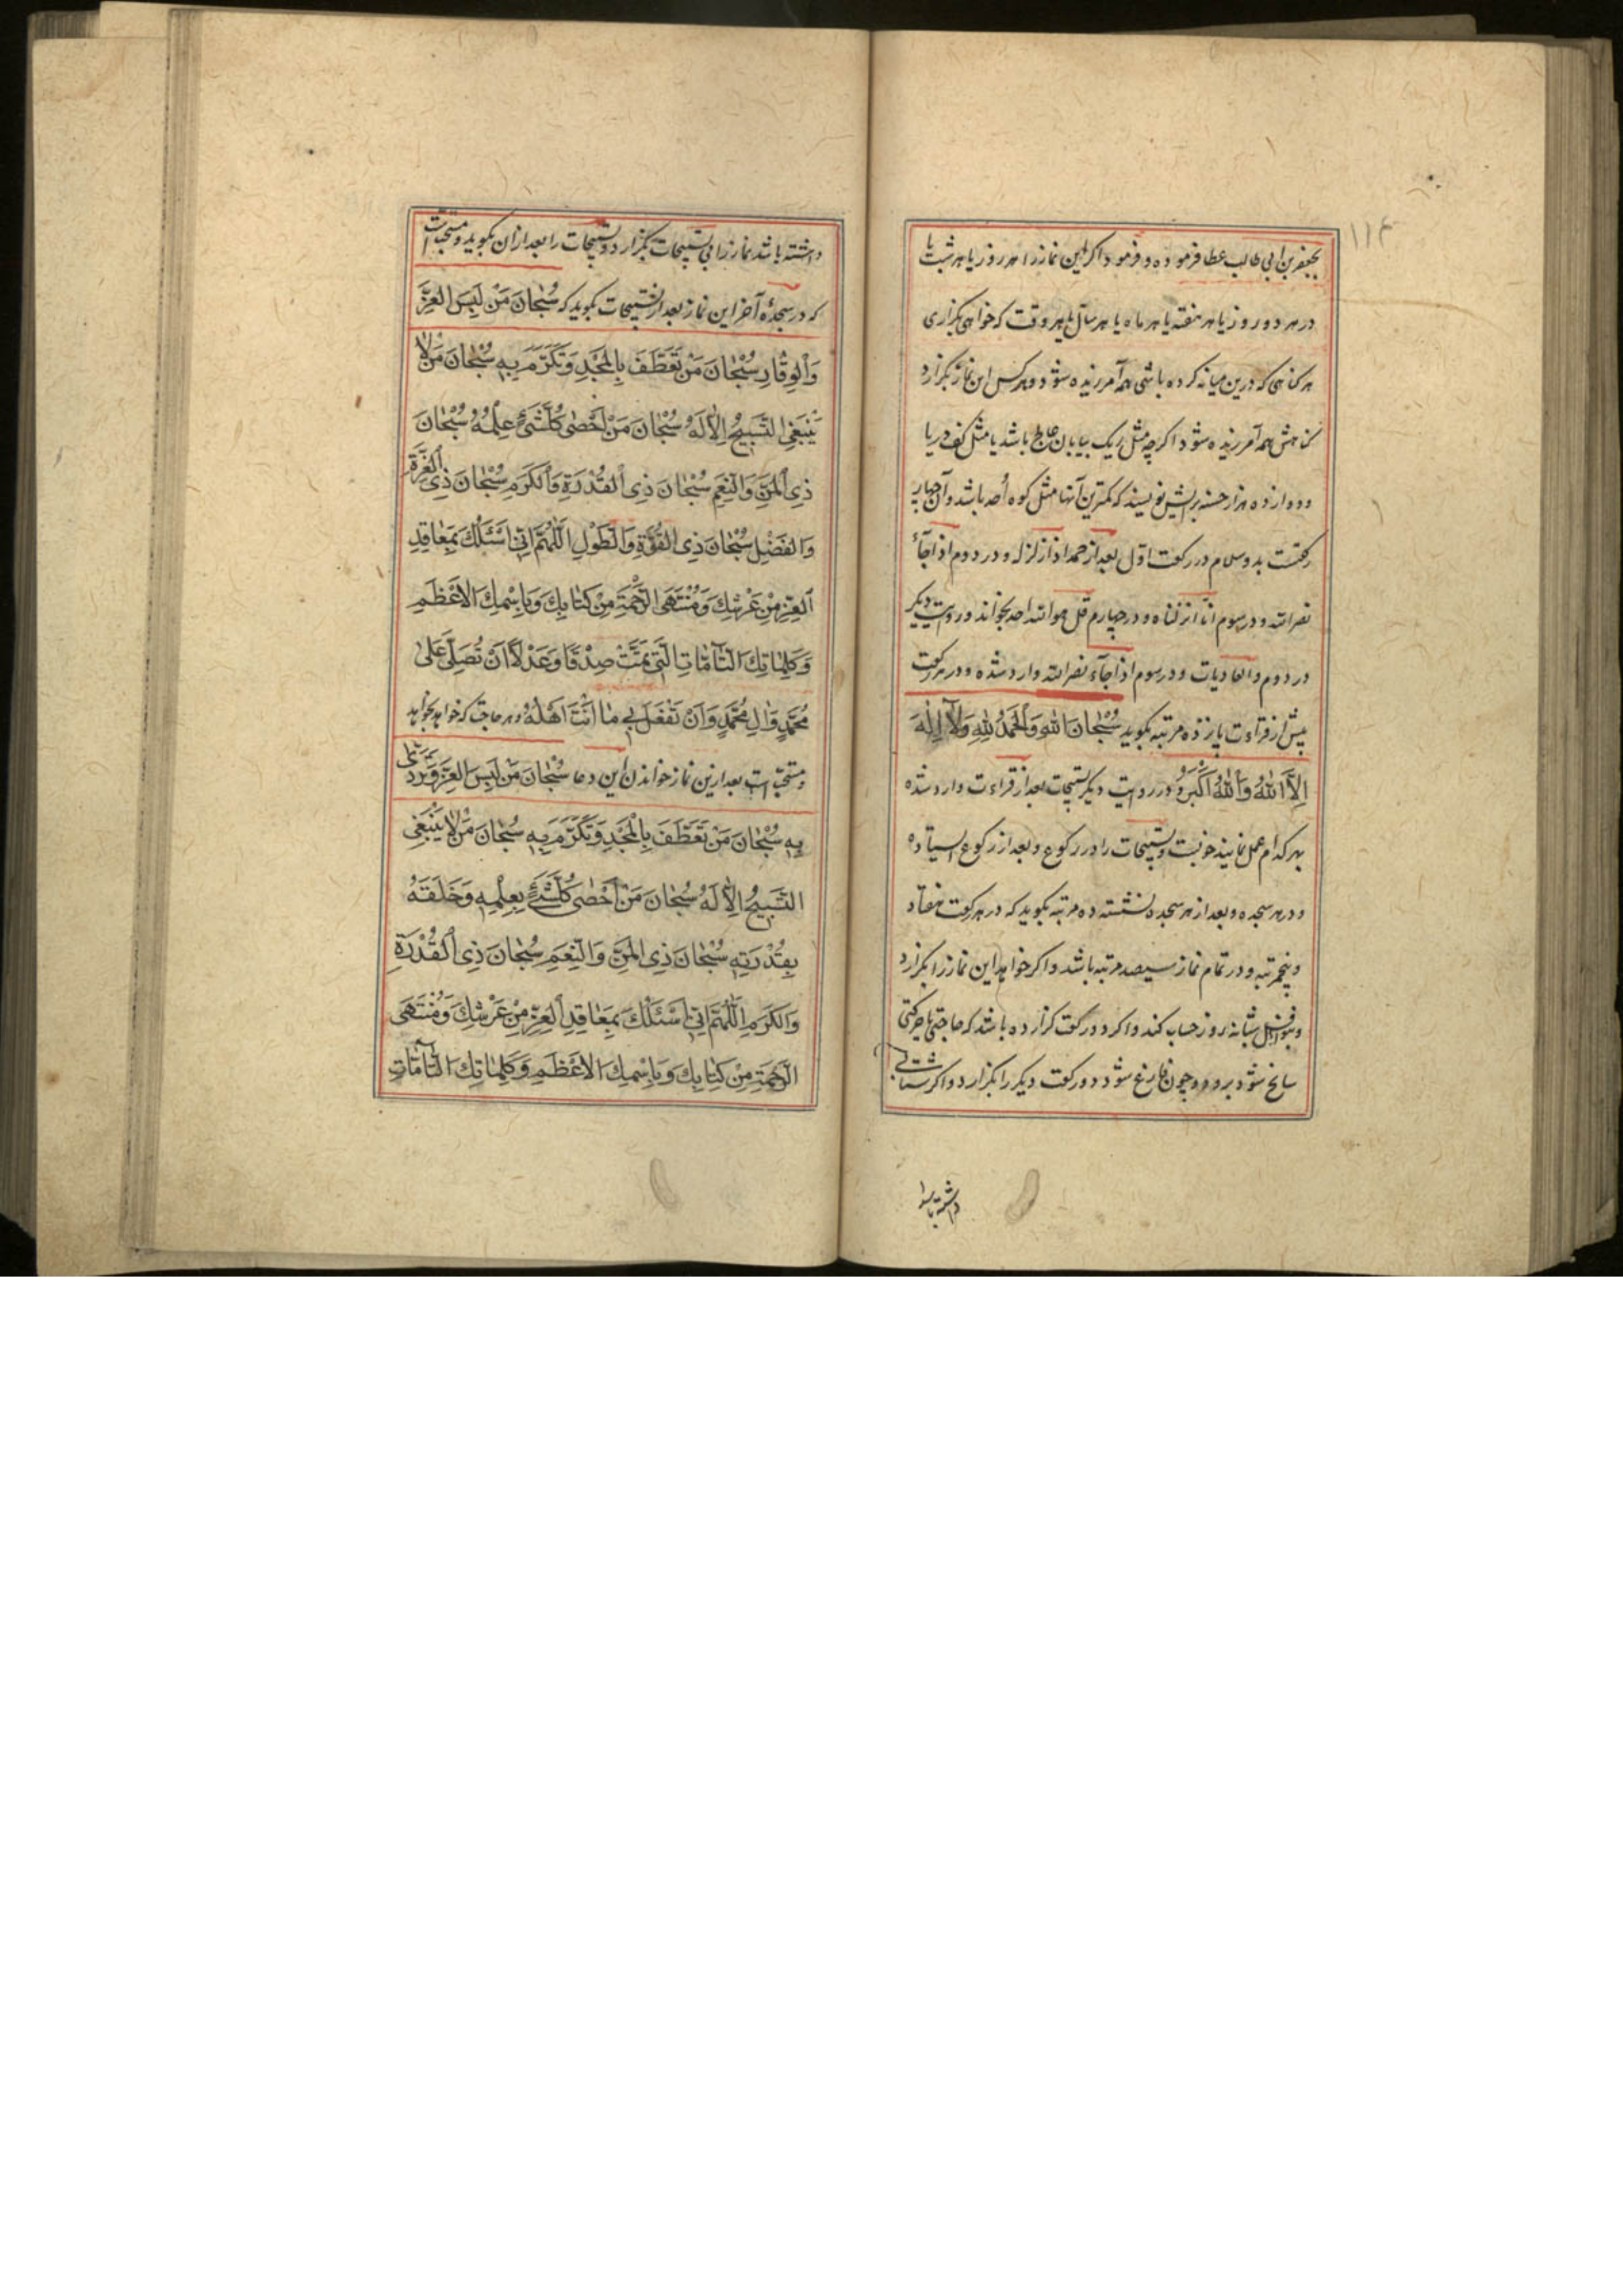 ۱۱۴
بجعفر بن ابی طالب عطا فرموده و فرمود اکر این نماز را هر روز یا هر شب یا
در هر دو روز یا هر هفته یا هر ماه یا هر سال یا هر وقت که خواهی بکزاری
هر کناهی که درین میانه کرده باشی همه آمرزیده شود و هر کس این نماز بکزارد
کناهش همه آمرزیده شود اکرچه مثل ریک بیابان عالج باشد یا مثل کف دریا
و دوازده هزار حسنه برایش نویسند که کمترین آنها مثل کوه اُحد باشد و آن چهار
رکعتست بدو سلام در رکعت اوّل بعد از حمد اذا زلزله و در دوم اذا جآءَ
نصر الله و در سوم انّا انزلناه و در چهارم قل هو الله احد بخواند و در روایت دیکر
در دوم والعادیات و در سوم اذا جآءَ نصر الله وارد شده و در هر رکعت
پیش از قراءت پانزده مرتبه بکوید سُبْحانَ اللهِ وَالْحَمْدُ لِلّٰهِ وَلآ اِلٰهَ
اِلاَّ اللّٰهُ وَاللّٰهُ اَکْبَرُ و در روایت دیکر تسبیحات بعد از قراءت وارد شده
بهر کدام عمل نمایند خوبست و تسبیحات را در رکوع و بعد از رکوع ایستاده
و در هر سجده و بعد از هر سجده نشسته ده مرتبه بکوید که در هر رکعت هفتاد
و پنج مرتبه و در تمام نماز سیصد مرتبه باشد و اکر خواهد این نماز را بکزارد
و بنوافل شبانه روز حساب کند و اکر دو رکعت کزارده باشد که حاجتی یا حرکتی
سانح شود برود و چون فارغ شود دو رکعت دیکر را بکزارد و اکر شتابی
داشته باشد
داشته باشد نماز را بی تسبیحات بکزارد و تسبیحات را بعد از ان بکوید و مستحبّ است
که در سجدهٔ آخر این نماز بعد از تسبیحات بکوید که سُبْحانَ مَنْ لَبِسَ الْعِزَّ
وَالْوِقارِ سُبْحانَ مَنْ تَعَطَّفَ بِالْمَجْدِ وَتَکَرَّمَ بِهِ سُبْحانَ مَنْ لا
یَنْبَغِی التَّسْبِیحُ اِلاّ لَهُ سُبْحانَ مَنْ اَحْصٰی کُلَّ شَئٍ عِلْمُهُ سُبْحانَ
ذِی الْمَنِّ وَالنِّعَمِ سُبْحانَ ذِی الْقُدْرَةِ وَالْکَرَمِ سُبْحانَ ذِی الْعِزَّةِ
وَالْفَضْلِ سُبْحانَ ذِی الْقُوَّةِ وَالطَّوْلِ اَللّٰهُمَّ اِنّی اَسْئَلُكَ بِمَعاقِدِ
الْعِزِّ مِنْ عَرْشِكَ وَمُنْتَهَی الرَّحْمَةِ مِنْ کِتابِكَ وَبِاسْمِكَ الاَعْظَمِ
وَکَلِماتِكَ التّآمّاتِ الَّتی تَمَّتْ صِدْقًا وَعَدْلاً اَنْ تُصَلِّیَ عَلٰی
مُحَمَّدٍ وَالِ مُحَمَّدٍ وَاَنْ تَفْعَلَ بی ما اَنْتَ اَهْلُهُ و هر حاجت که خواهد بخواهد
و مستحبّ است بعد ازین نماز خواندن این دعا سُبْحانَ مَنْ لَبِسَ الْعِزَّ وَتَرَدّٰی
بِهِ سُبْحانَ مَنْ تَعَطَّفَ بِالْمَجْدِ وَتَکَرَّمَ بِهِ سُبْحانَ مَنْ لا یَنْبَغِی
التَّسْبِیحُ اِلاّ لَهُ سُبْحانَ مَنْ اَحْصٰی کُلَّ شَیْءٍ بِعِلْمِهِ وَخَلَقَهُ
بِقُدْرَتِهِ سُبْحانَ ذِی الْمَنِّ وَالنِّعَمِ سُبْحانَ ذِی الْقُدْرَةِ
وَالْکَرَمِ اَللّٰهُمَّ اِنّی اَسْئَلُكَ بِمَعاقِدِ الْعِزِّ مِنْ عَرْشِكَ وَمُنْتَهَی
الرَّحْمَةِ مِنْ کِتابِكَ وَبِاسْمِكَ الاَعْظَمِ وَکَلِماتِكَ التّآمّاتِ